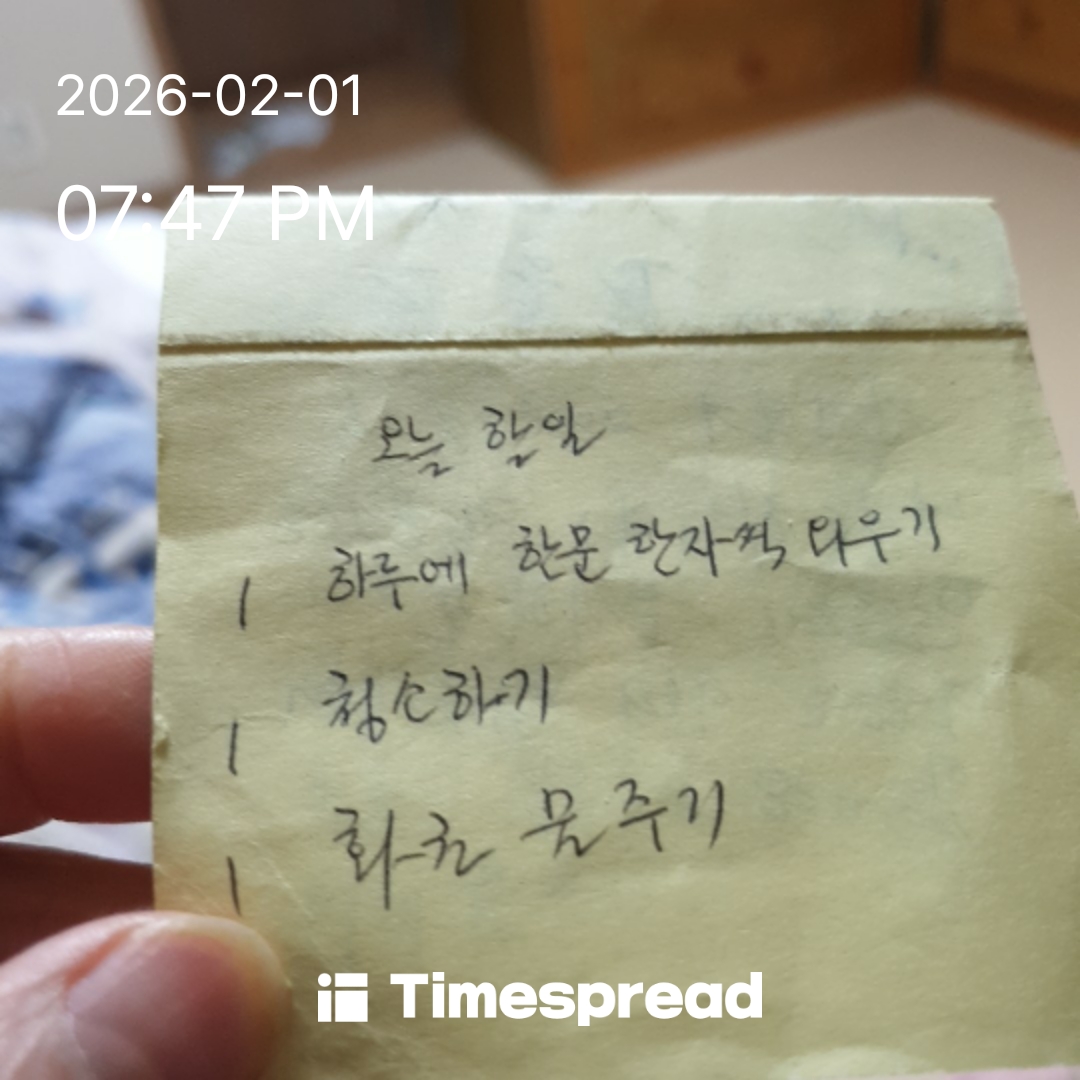 2026-02-01
07:47 PM
오늘 할일
1 하루에 한문 한자씩 외우기
1 청소하기
1 화초 물주기
Timespread